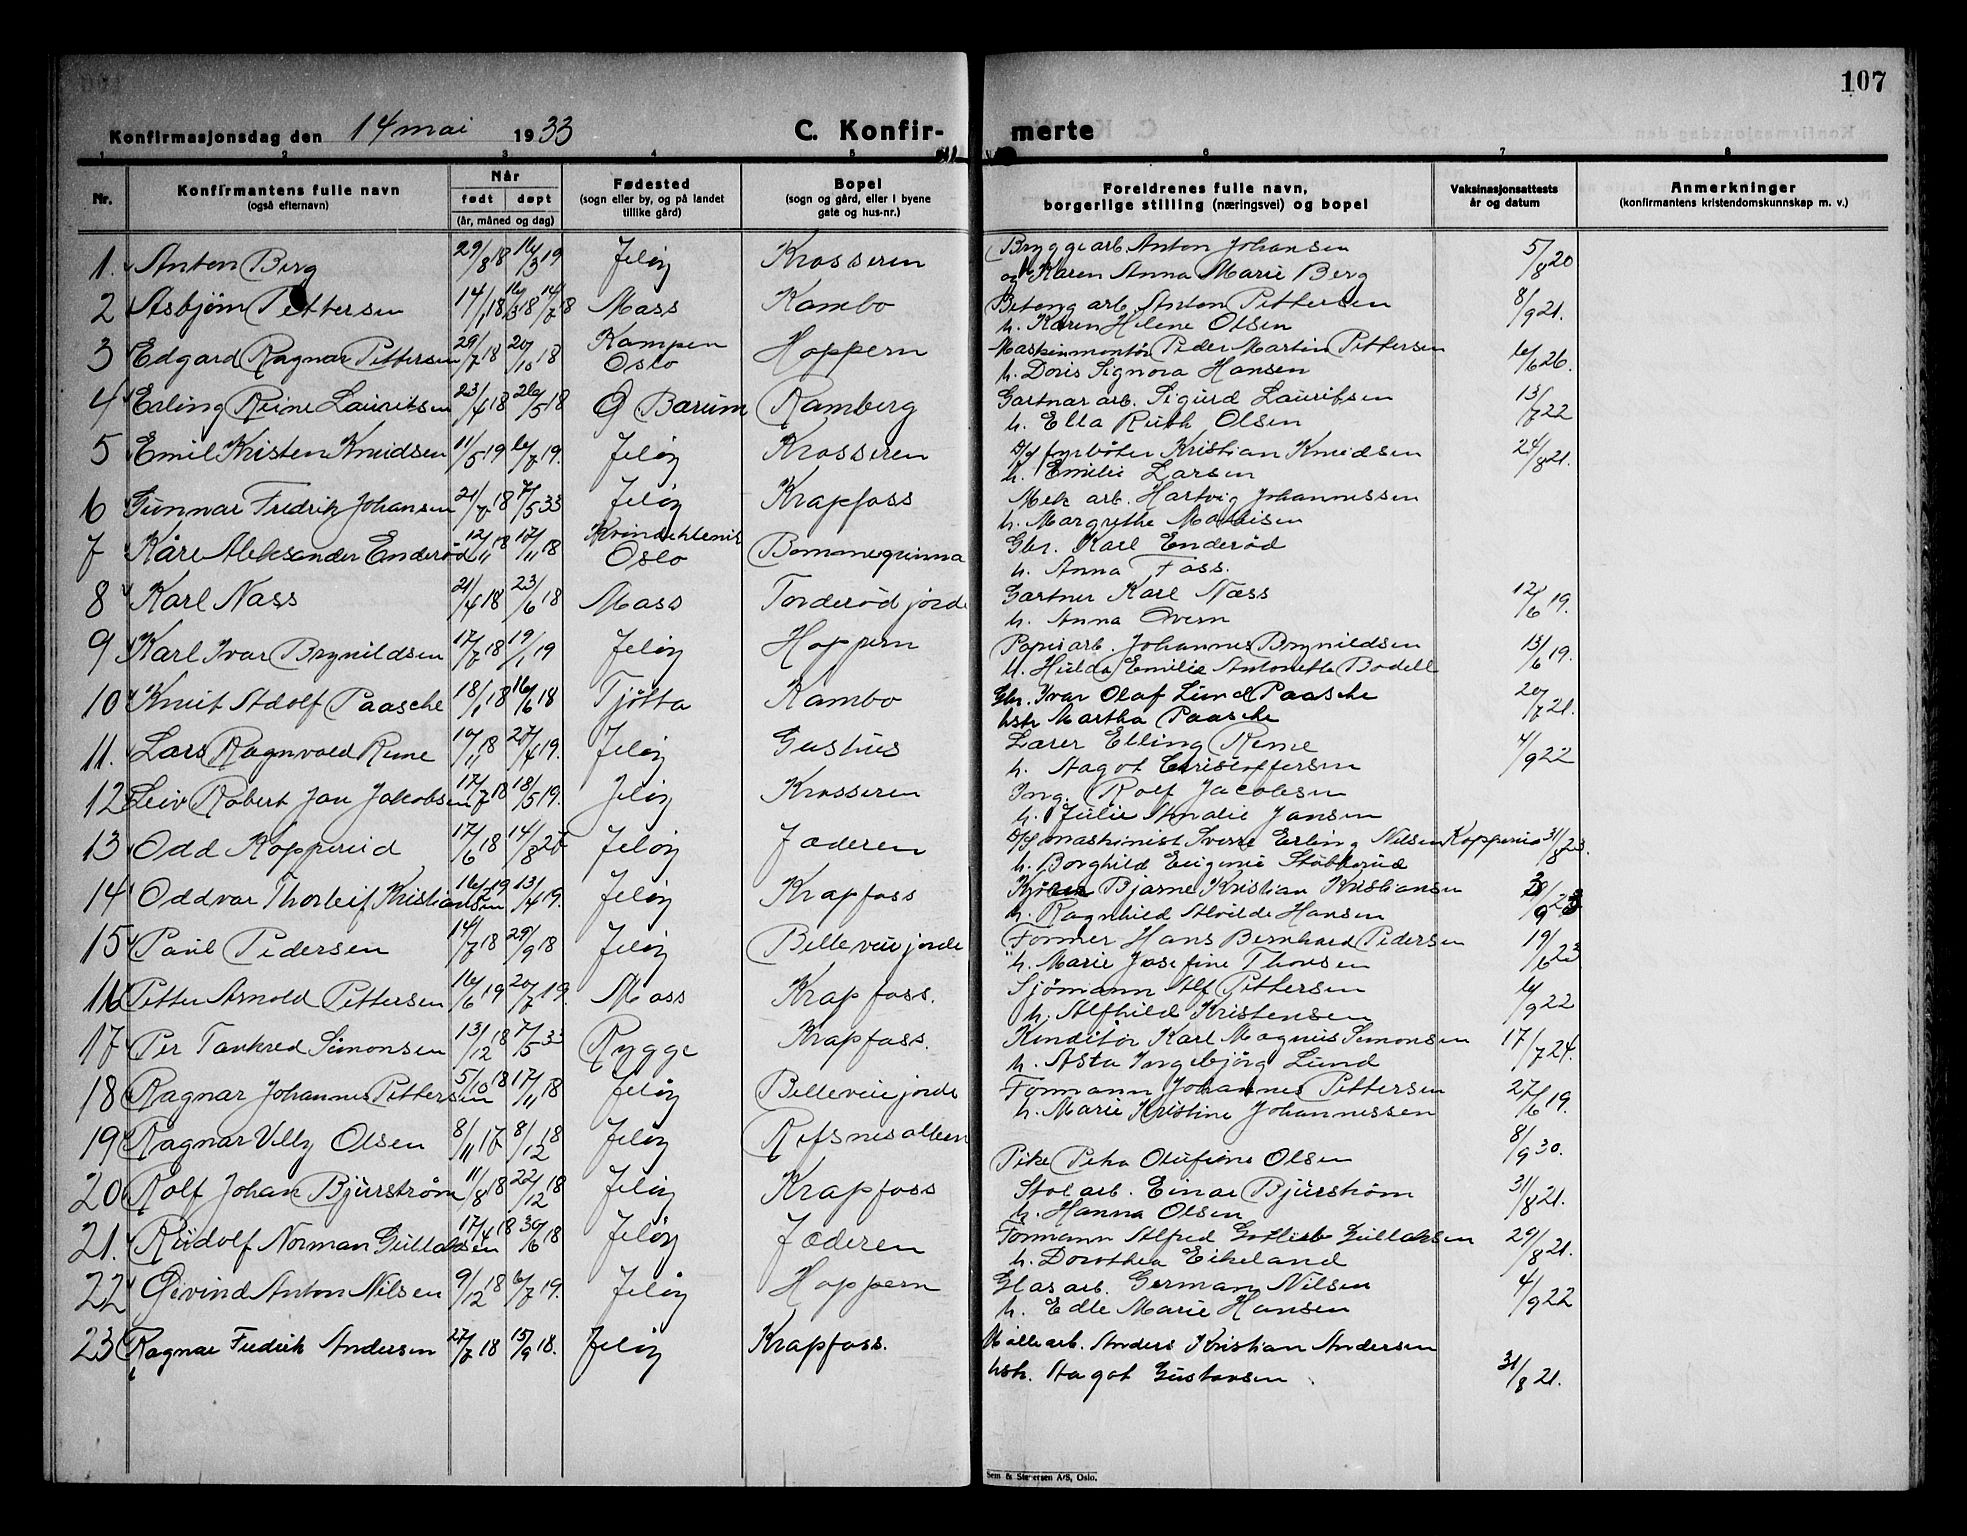 107
Konfirmasjonsdag den 14 mai 1933 C. Konfir- merte
1 2 3 4 5 6 7 8
Nr. Konfirmantens fulle navn (også efternavn) Når født døpt (år, måned og dag) Fødested (sogn eller by, og på landet tillike gård) Bopel (sogn og gård, eller i byene gate og hus-nr.) Foreldrenes fulle navn, borgerlige stilling (næringsvei) og bopel Vaksinasjonsattests år og datum Anmerkninger (konfirmantens kristendomskunnskap m. v.)
1. Anton Berg 29/8 18 16/3 19 Jeløy Krosseren Bryggearb. Anton Johansen 5/8 20
og Karen Anna Marie Berg
2 Asbjørn Pettersen 14/1 18 14/7 18 Moss Kambo Betongarb. Anton Pettersen 8/9 21.
h. Karen Helene Olsen
3 Edgard Ragnar Pettersen 29/7 18 20/10 18 Kampen Oslo Hoppern Maskinmontør Peder Martin Pettersen 6/6 26.
h. Doris Signora Hansen
4 Erling Reine Lauritsen 23/4 18 26/5 18 Ø Bærum Ramberg Gartnararb. Sigurd Lauritsen 13/7 22
h. Ella Ruth Olsen
5 Emil Kristen Knudsen 11/5 19 6/7 19. Jeløy Krosseren D/S fyrbøter Kristian Knudsen 24/8 21.
h. Emilie Larsen
6 Gunnar Fredrik Johansen 21/7 18 7/5 33 Jeløy Krapfoss Mek arb. Hartvig Johannessen
h. Margrethe Mathisen
7 Kåre Aleksander Enderød 12/11 18 17/11 18 Oslo Bommegrinna Gbr. Karl Enderød
h. Anna Foss.
8 Karl Næss 21/4 18 23/6 18 Moss Torderødjorde Gartner Karl Næss 12/6 19.
h. Anna Overn
9 Karl Ivar Brynildsen 17/7 18 19/1 19 Jeløy Hoppern Papirarb. Johannes Brynildsen 13/6 19.
h. Hulda Emilie Antonette Bodell
10 Knut Adolf Paasche 18/1 18 16/6 18 Tjøtta Kambo Gbr. Ivar Olaf Lund Paasche 20/7 21.
hstr Martha Paasche
11. Lars Ragnvald Reme 19/11 18 27/4 19. Jeløy Gushus Lærer Elling Reme 4/9 22
h. Aagot Christoffersen
12 Leiv Robert Jan Jakobsen 17/7 18 18/5 19. Jeløy Krosseren Ing. Rolf Jacobsen
h. Julie Amalie Jansen
13 Odd Kopperud 17/6 18 14/8 20 Jeløy Jæderen D/S maskinist Sverre Erling Nilsen Kopperud 31/8 23.
h. Borghild Eugenie Stubberud
14 Oddvar Thorleif Kristiansen 16/2 19 13/4 19. Jeløy Krapfoss Kjører Bjarne Kristian Kristiansen
h. Ragnhild Alvilde Hansen
15 Paul Pedersen 14/7 18 29/9 18 Jeløy Bellevuejorde Former Hans Bernhard Pedersen 19/6 23
h. Marie Josefine Thorsen
16 Petter Arnold Pettersen 16/6 19 20/7 19 Moss Krapfoss. Sjømann Alf Pettersen 6/9 22
h. Alfhild Kristensen
17 Per Tankred Simonsen 13/12 18 7/5 33 Rygge Krapfoss. Konditor Karl Magnus Simonsen 17/7 24.
h. Asta Ingebjørg Lund
18 Ragnar Johannes Pettersen 5/10 18 17/11 18 Jeløy Bellevuejorde Formann Johannes Pettersen 27/6 19.
h. Marie Kristine Johannessen
19 Ragnar Villy Olsen 8/11 17 8/12 18 Jeløy Refsnesalleen Pike Petra Olufine Olsen 8/9 30.
20 Rolf Johan Bjurstrøm 11/8 18 22/12 18 Jeløy Krapfoss Stolarb. Einar Bjurstrøm 31/8 21.
h. Hanna Olsen
21. Rudolf Norman Gullaksen 17/4 18 30/6 18 Jeløy Jæderen Formann Alfred Gotlieb Gullaksen 29/8 21.
h. Dorothea Eikeland
22 Øivind Anton Nilsen 9/12 18 6/7 19. Jeløy Hoppern Glasarb. German Nilsen 4/9 22
h. Edle Marie Hansen
23 Ragnar Fredrik Andersen 27/7 18 15/9 18. Jeløy Krapfoss. Møllearb. Anders Kristian Andersen
hstr. Aagot Gustavsen 31/8 21.
Sem & Stenersen A/S, Oslo.